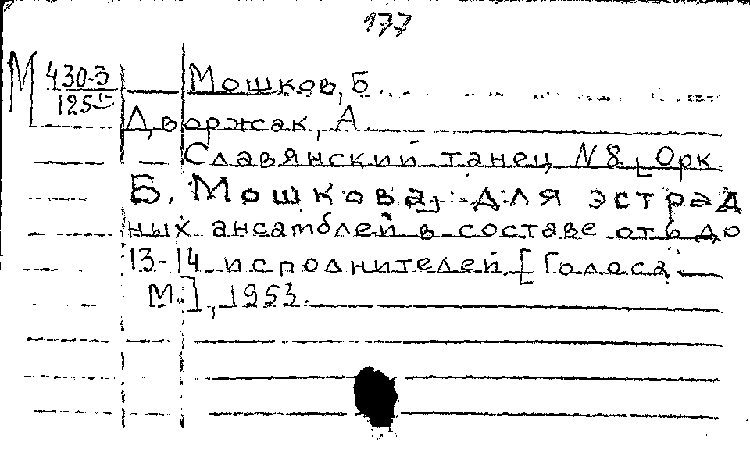 177
М 430-3 Мошков, Б.
125
Дворжак, А.
Славянский танец N 8 [Орк
Б. Мошкова] для эстрад
ных ансамблей в составе от 6 до
13-14 исполнителей. [Голоса
М.], 1953.